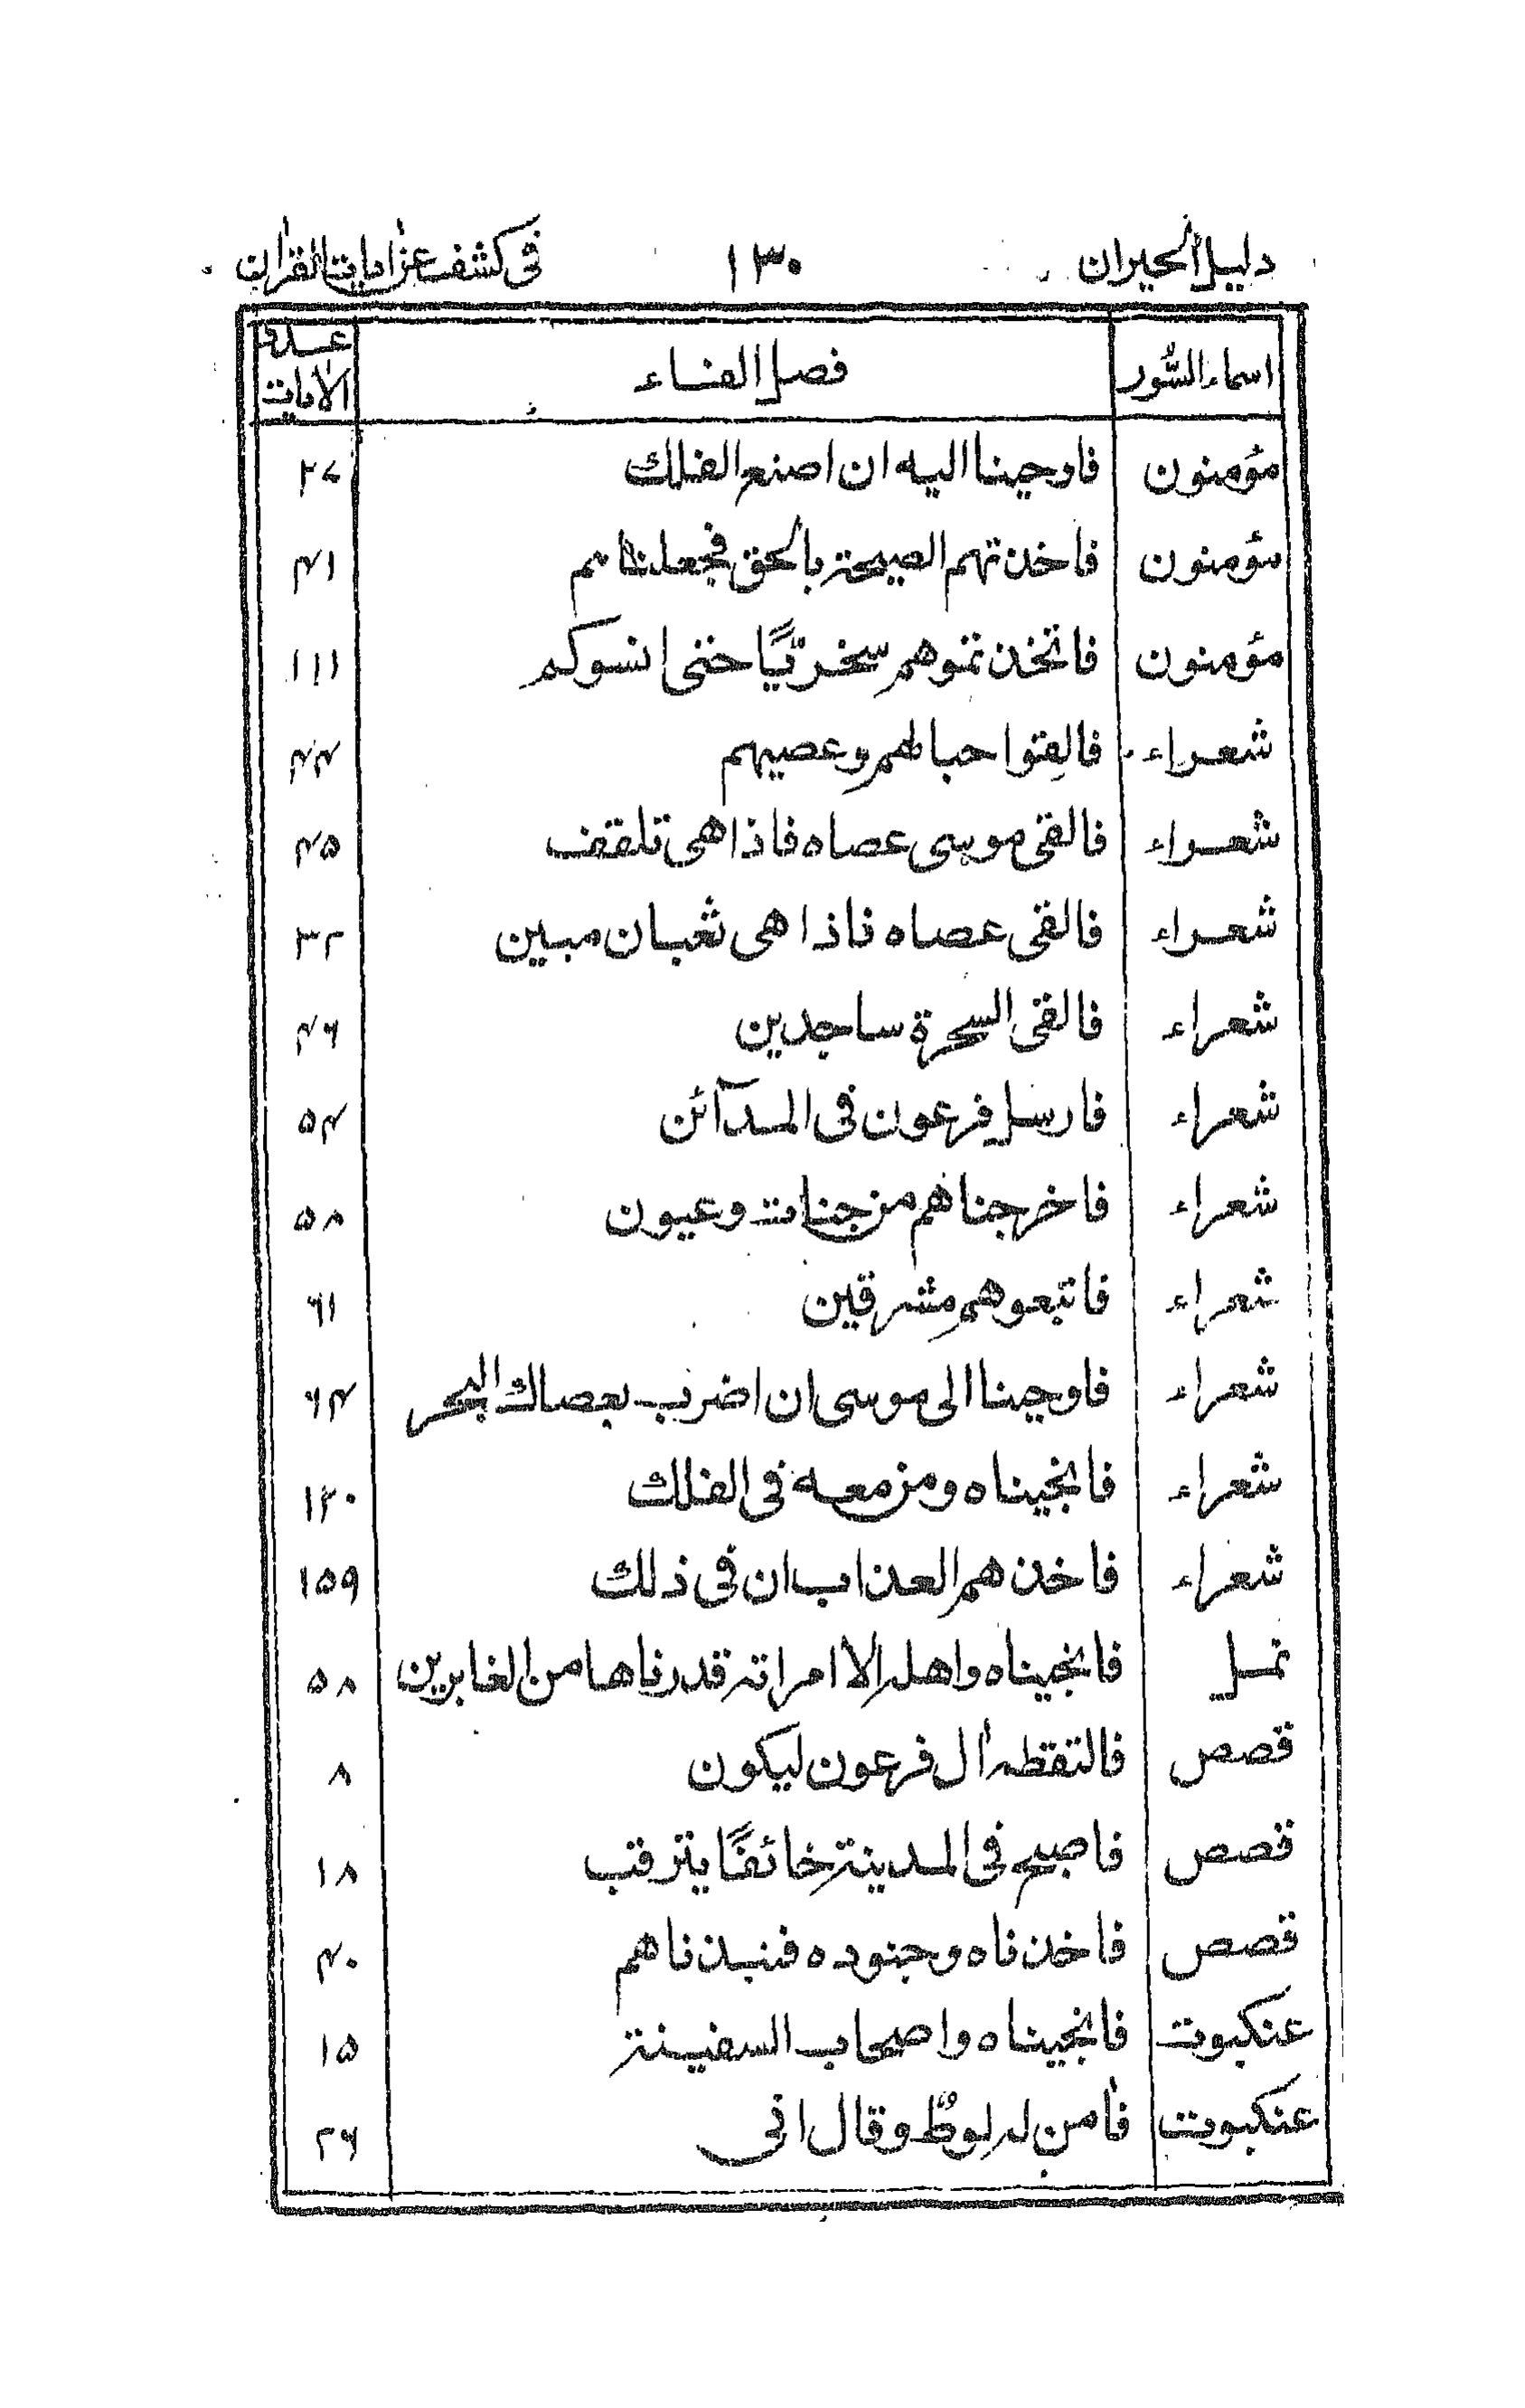 دليل الحيران ١٣٠ فى كشف عن ايات القران
اسماء السّور فصل الفاء عدد الايات
مؤمنون فاوحينا اليه ان اصنع الفلك ٢٧
مؤمنون فاخذتهم الصيحة بالحق فجعلناهم ٤١
مؤمنون فاتخذتموهم سخريًّا حتى انسوكم ١١١
شعراء فالقوا حبالهم وعصيهم ٤٤
شعراء فالقى موسى عصاه فاذا هى تلقف ٤٥
شعراء فالقى عصاه فاذا هى ثعبان مبين ٣٢
شعراء فالقى السحرة ساجدين ٤٦
شعراء فارسل فرعون فى المدآئن ٥٤
شعراء فاخرجناهم من جنات وعيون ٥٨
شعراء فاتبعوهم مشرقين ٦١
شعراء فاوحينا الى موسى ان اضرب بعصاك البحر ٦٤
شعراء فانجيناه ومن معه فى الفلك ١٢٠
شعراء فاخذهم العذاب ان فى ذلك ١٥٩
نمل فانجيناه واهله الا امراته قدرناها من الغابرين ٥٨
قصص فالتقطه اٰل فرعون ليكون ٨
قصص فاصبح فى المدينة خائفًا يترقب ١٨
قصص فاخذناه وجنوده فنبذناهم ٤٠
عنكبوت فانجيناه واصحاب السفينة ١٥
عنكبوت فاٰمن له لوطٌ وقال انى ٢٦